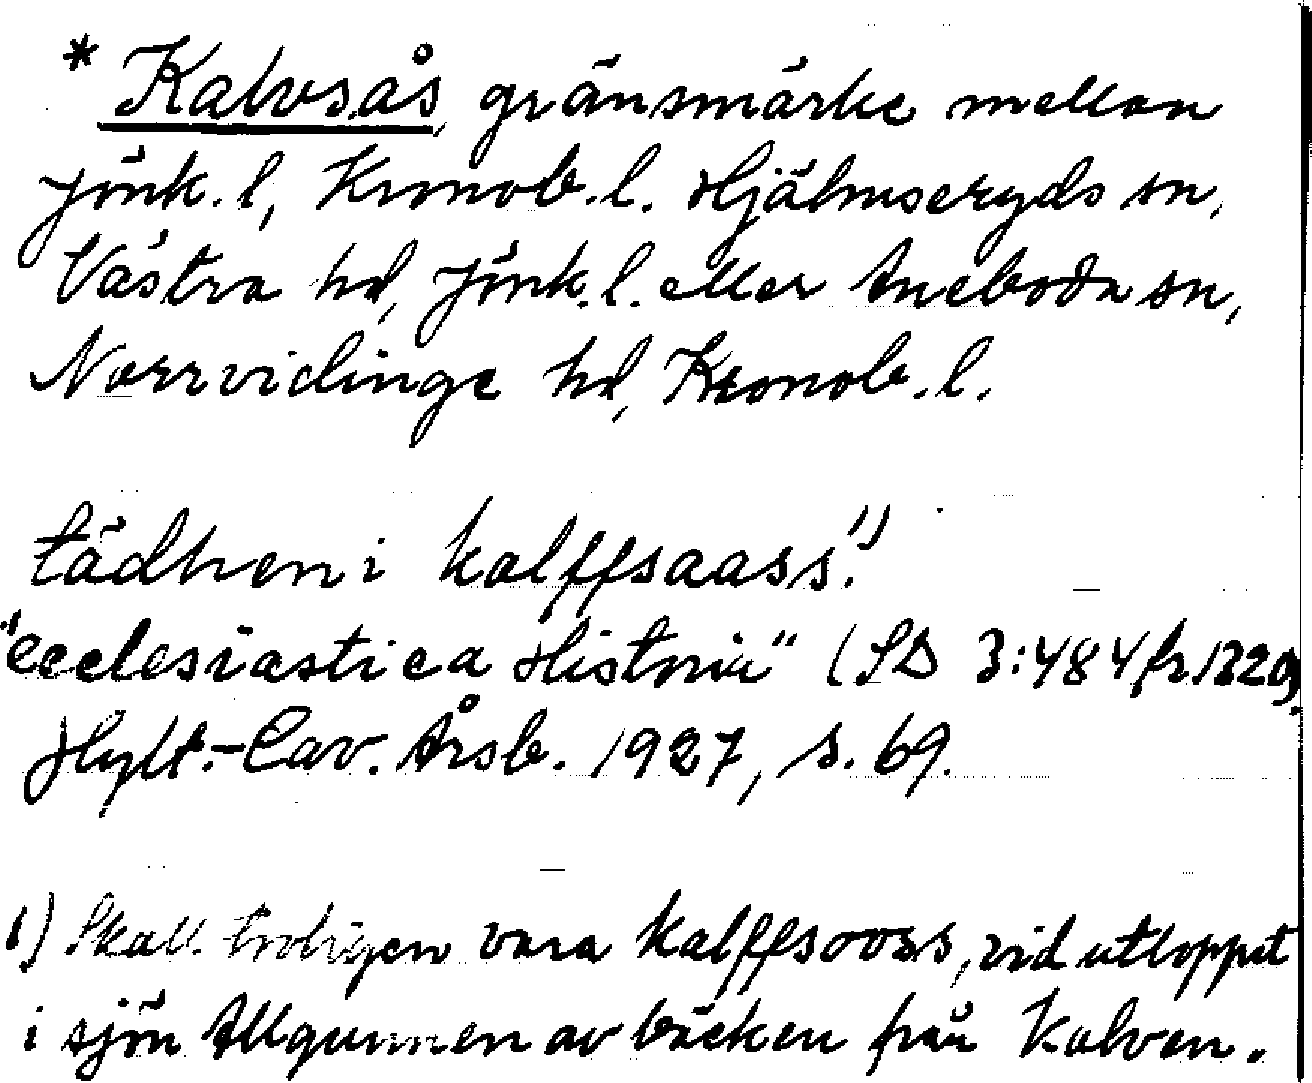 * Kalvsås, gränsmärke mellan
Jönk. l, Kronob. l. Hjälmseryds sn,
Västra hd, Jönk. l. eller Aneboda sn,
Norrvidinge hd, Kronob. l.
tädhen i kalffsaass. 1)
"Ecclesiastica Historia" (SD 3:484 fr. 1320).
Hylt.-Cav. Årsb. 1927, s. 69.
1) Skall troligen vara kalffsooss, vid utloppet
i sjön Allgunnen av bäcken från Kalven.